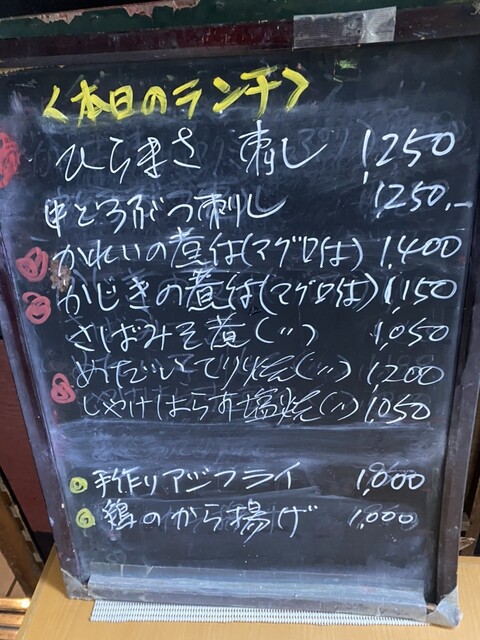 <本日のランチ>
ひらまさ 刺し 1,250
中とろぶつ刺し 1,250.-
かれいの煮付(マグロ付) 1,400
かじきの煮付(マグロ付) 1,150
さばみそ煮(〃) 1,050
めだいてり焼(〃) 1,200
しゃけはらす塩焼(〃) 1,050
手作りアジフライ 1,000
鶏のから揚げ 1,000